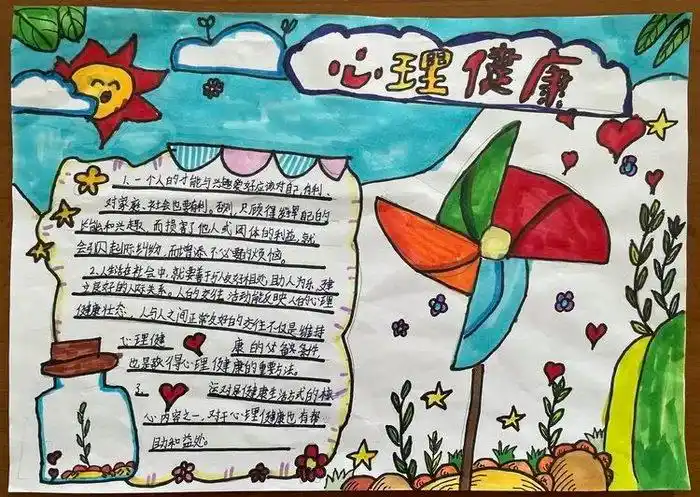 心理健康
1、一个人的才能与兴趣爱好应该对自己有利、
对家庭、社会也要有利。否则,只顾得发挥自己的
长能和兴趣,而损害了他人或团体的利益,就
会引起际纠纷,而增添不必要的烦恼。
2、人生活在社会中,就要善于与人友好相处,助人为乐,建
立良好的人际关系。人的交往活动能反映人的心理
健康状态。人与人之间正常友好的交往不仅是维持
心理健 康的必备条件,
也是获得心理健康的重要方法。
3、 运动是健康生活方式的核
心内容之一,对于心理健康也有帮
助和益处。